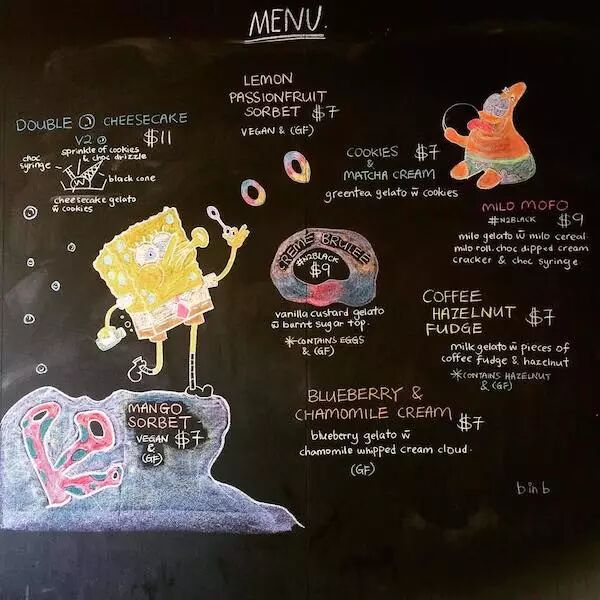 MENU.
LEMON
PASSIONFRUIT
SORBET $7
VEGAN & (GF)
DOUBLE CHEESECAKE
V2 $11
sprinkle of cookies
& choc drizzle
choc
syringe
black cone
cheesecake gelato
w̄ cookies
COOKIES $7
&
MATCHA CREAM
greentea gelato w̄ cookies
MILO MOFO
#N2BLACK $9
milo gelato w̄ milo cereal
milo roll. choc dipped cream
cracker & choc syringe
CREMÉ BRULEE
#N2BLACK
$9
vanilla custard gelato
w̄ burnt sugar top.
*CONTAINS EGGS
& (GF)
COFFEE
HAZELNUT $7
FUDGE
milk gelato w̄ pieces of
coffee fudge & hazelnut
*CONTAINS HAZELNUT
& (GF)
BLUEBERRY &
CHAMOMILE CREAM $7
blueberry gelato w̄
chamomile whipped cream cloud.
(GF)
MANGO
SORBET
VEGAN $7
&
(GF)
b in b